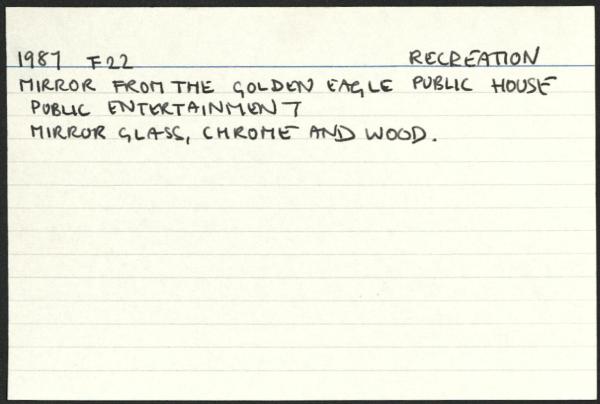 1987 F22 RECREATION
MIRROR FROM THE GOLDEN EAGLE PUBLIC HOUSE
PUBLIC ENTERTAINMENT
MIRROR GLASS, CHROME AND WOOD.